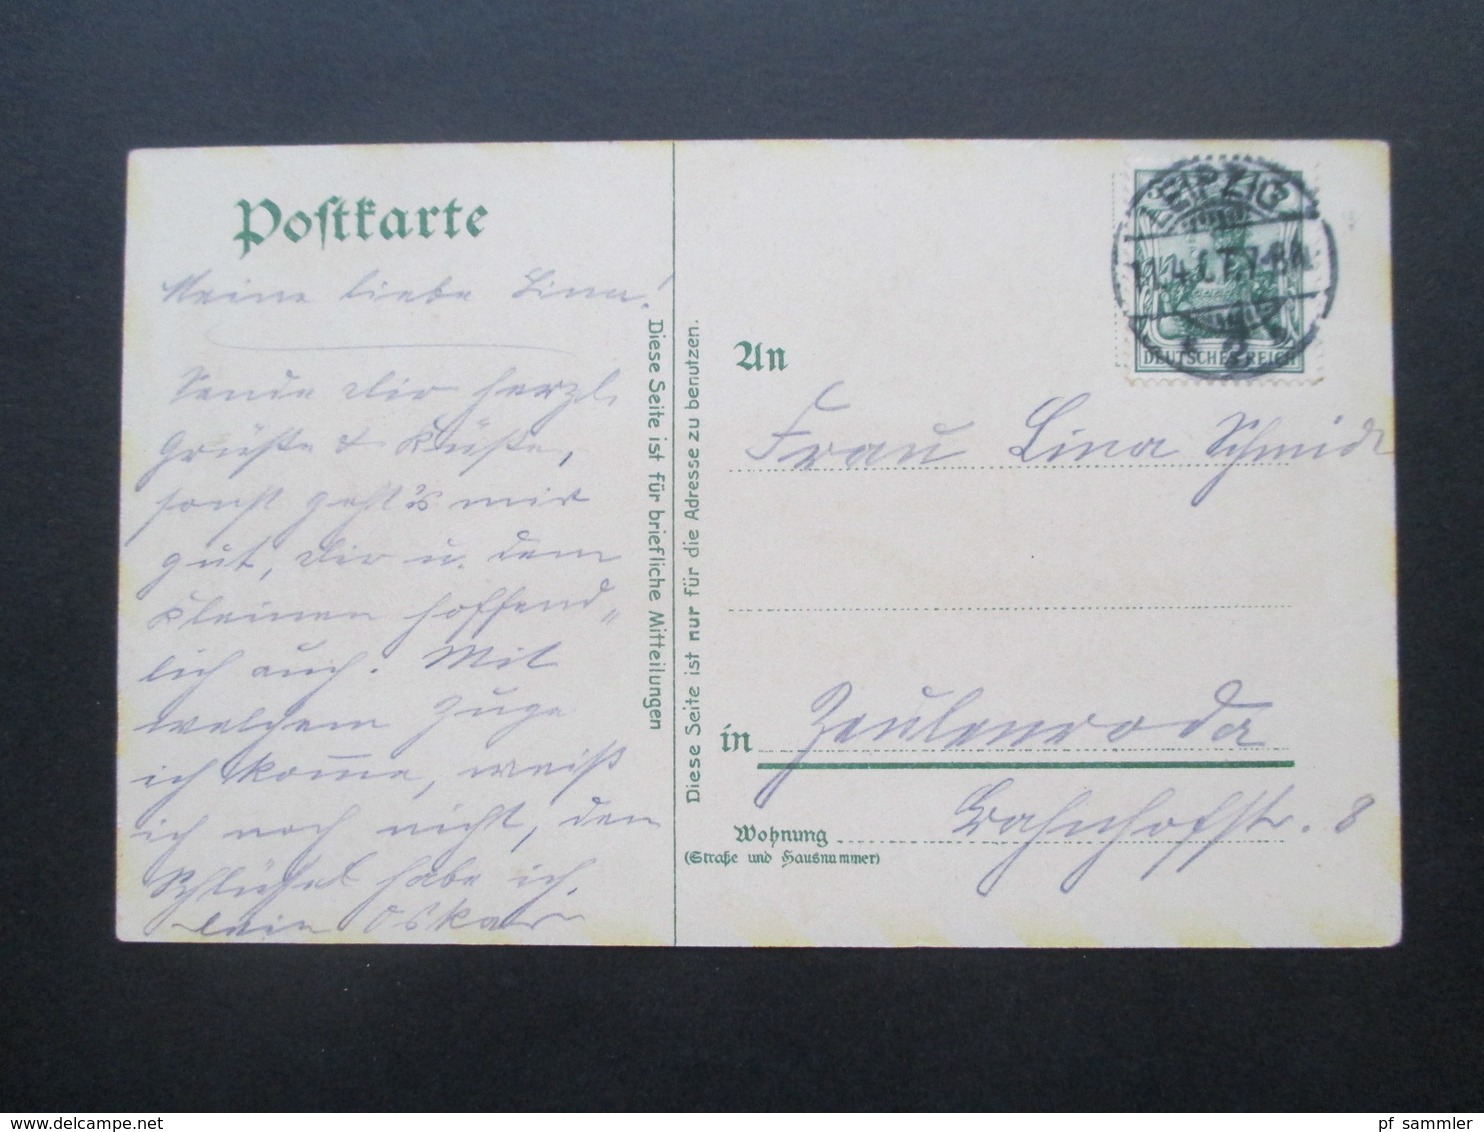 Postkarte
Meine liebe Lina!
Sende Dir herzl.
Grüße & Küße,
sonst geht's mir
gut, Dir u. dem
Kleinen hoffend„
lich auch. Mit
welchem Zuge
ich komme, weiß
ich noch nicht, den
Schlüssel habe ich.
Dein Oskar
Diese Seite ist für briefliche Mitteilungen
Diese Seite ist nur für die Adresse zu benutzen.
LEIPZIG
11.4.
2
DEUTSCHES REICH
An
Frau Lina Schmidt
in Zeulenroda
Wohnung Bahnhofstr. 8
(Straße und Hausnummer)
pf_sammler